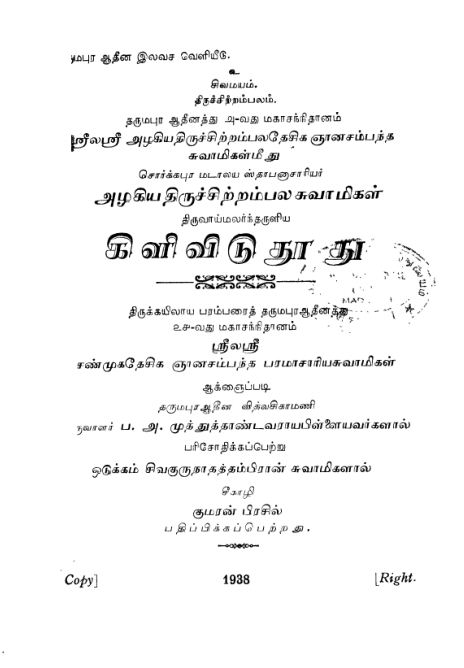 தமபுர ஆதீன இலவச வெளியீடு.
உ
சிவமயம்.
திருச்சிற்றம்பலம்.
தருமபுர ஆதீனத்து அ-வது மகாசந்நிதானம்
ஸ்ரீலஸ்ரீ அழகியதிருச்சிற்றம்பலதேசிக ஞானசம்பந்த
சுவாமிகள்மீது
சொர்க்கபுர மடாலய ஸ்தாபனாசாரியர்
அழகியதிருச்சிற்றம்பலசுவாமிகள்
திருவாய்மலர்ந்தருளிய
கிளிவிடுதூது
திருக்கயிலாய பரம்பரைத் தருமபுரஆதீனத்து
உச-வது மகாசந்நிதானம்
ஸ்ரீலஸ்ரீ
சண்முகதேசிக ஞானசம்பந்த பரமாசாரியசுவாமிகள்
ஆக்ஞைப்படி
தருமபுரஆதீன வித்வசிகாமணி
ப. அ. முத்துத்தாண்டவராயபிள்ளையவர்களால்
பரிசோதிக்கப்பெற்று
ஒடுக்கம் சிவகுருநாதத்தம்பிரான் சுவாமிகளால்
சீகாழி
குமரன் பிரசில்
பதிப்பிக்கப்பெற்றது.
Copy] 1938 [Right.